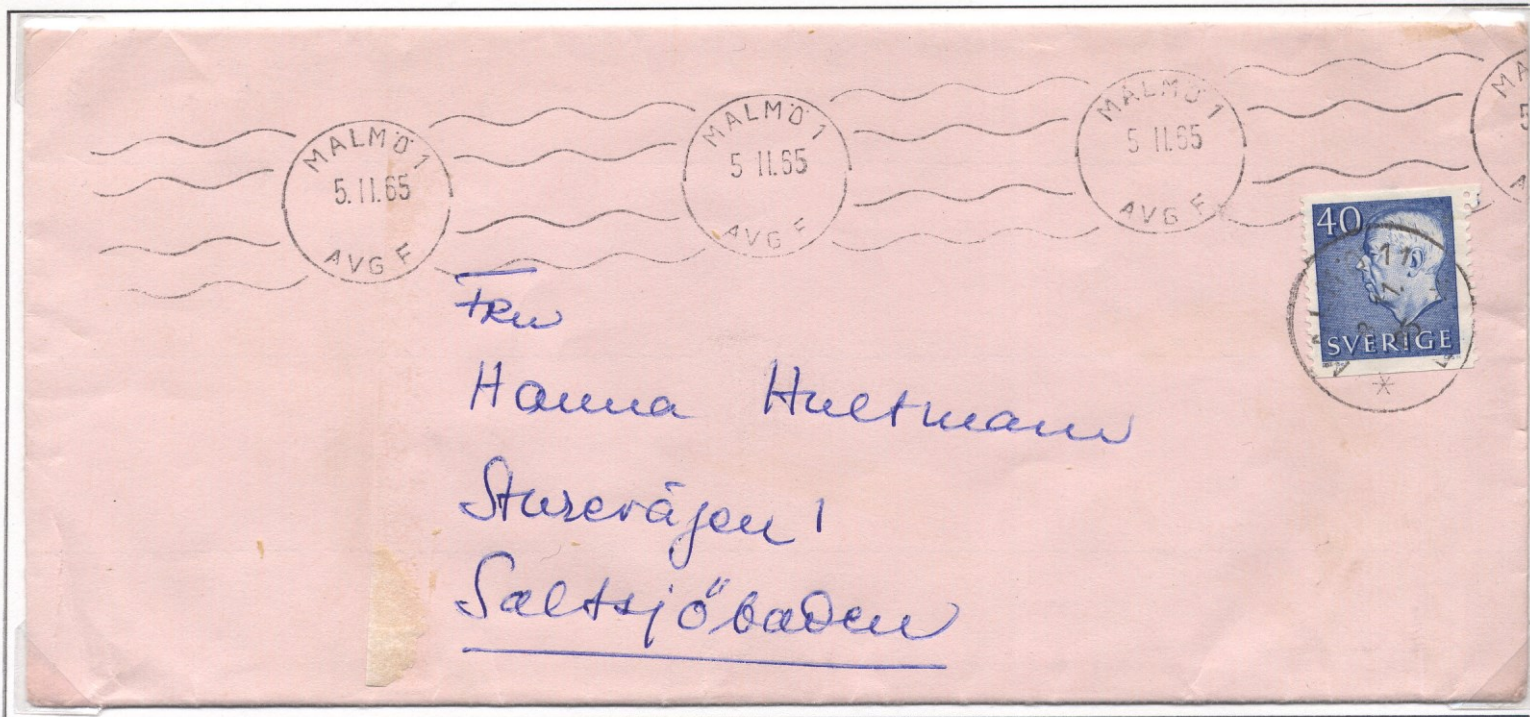 MALMÖ 1
5.11.65
AVG F
MALMÖ 1
5 11.65
AVG F
MALMÖ 1
5 11.65
AVG F
MA
5
A
40
SVERIGE
11
11.
Fru
Hanna Hultmann
Sturevägen 1
Saltsjöbaden